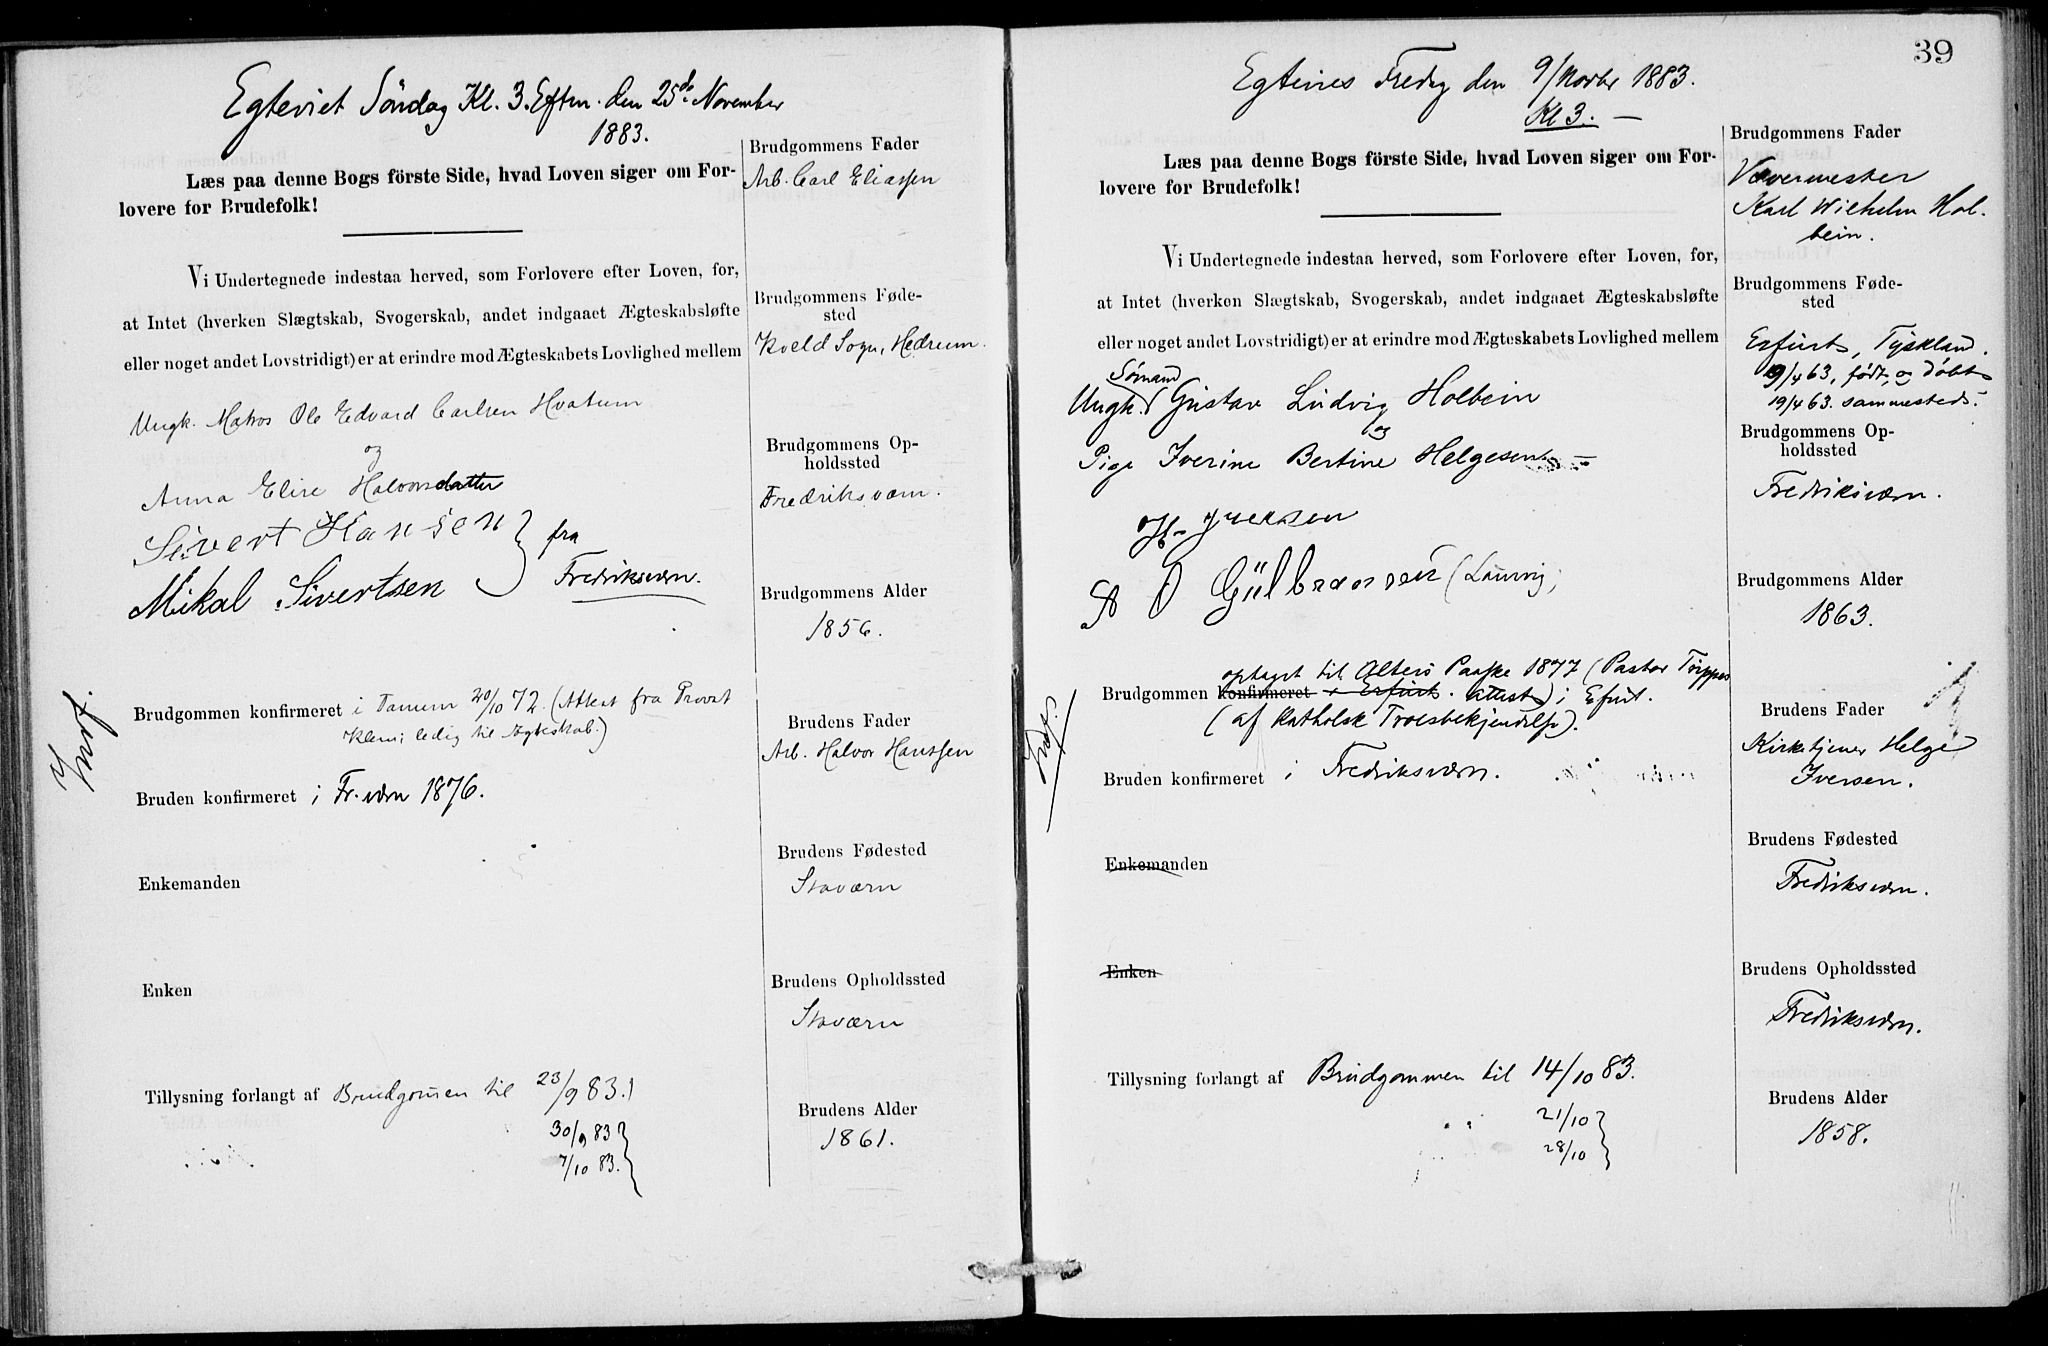 Egteviet Söndag Kl. 3. Eftm. den 25de November
1883.
Læs paa denne Bogs förste Side, hvad Loven siger om For-
lovere for Brudefolk!
Vi Undertegnede indestaa herved, som Forlovere efter Loven, for,
at Intet (hverken Slægtskab, Svogerskab, andet indgaaet Ægteskabsløfte
eller noget andet Lovstridigt) er at erindre mod Ægteskabets Lovlighed mellem
Ungk. Matros Ole Edvard Carlsen Hvatum
og
Anna Elise Halvorsdatter
Sivert Hansen } fra
Mikal Sivertsen Fredriksværn.
Brudgommen konfirmeret i Tanum 20/10 72. (Attest fra Provst
Klem; ledig til Ægteskab.)
Bruden konfirmeret i Fr. værn 1876.
Enkemanden
Enken
Tillysning forlangt af Brudgommen til 23/9 83.
30/9 83 }
7/10 83. }
Brudgommens Fader
Arb. Carl Eliassen
Brudgommens Føde-
sted
Kveld Sogn, Hedrum.
Brudgommens Op-
holdssted
Fredriksværn.
Brudgommens Alder
1856.
Brudens Fader
Arb. Halvor Hanssen
Brudens Fødested
Staværn
Brudens Opholdssted
Staværn
Brudens Alder
1861.
39
Fredag den 9/Novbr 1883.
Kl 3. —
Læs paa denne Bogs förste Side, hvad Loven siger om For-
lovere for Brudefolk!
Vi Undertegnede indestaa herved, som Forlovere efter Loven, for,
at Intet (hverken Slægtskab, Svogerskab, andet indgaaet Ægteskabsløfte
eller noget andet Lovstridigt) er at erindre mod Ægteskabets Lovlighed mellem
Sömand
Ungk. Gustav Ludvig Holbein
og
Pige Iverine Bertine Helgesen —
H. Iversen
O Gülbransen (Laurvig)
optaget til Alters Paaske 1877 (Pastor
Brudgommen konfirmeret i Erfurt. attest) i Efurt.
(af Katholsk Troesbekjendelse).
Bruden konfirmeret i Fredriksværn.
Enkemanden
Enken
Tillysning forlangt af Brudgommen til 14/10 83.
21/10 }
28/10 }
Brudgommens Fader
Vævermester
Karl Wilhelm Hol-
bein.
Brudgommens Føde-
sted
Erfurt, Tyskland.
9/4 63, født, og døbt
19/4 63. sammesteds.
Brudgommens Op-
holdssted
Fredriksværn.
Brudgommens Alder
1863.
Brudens Fader
Kirketjener Helge
Iversen.
Brudens Fødested
Fredriksværn.
Brudens Opholdssted
Fredriksværn.
Brudens Alder
1858.